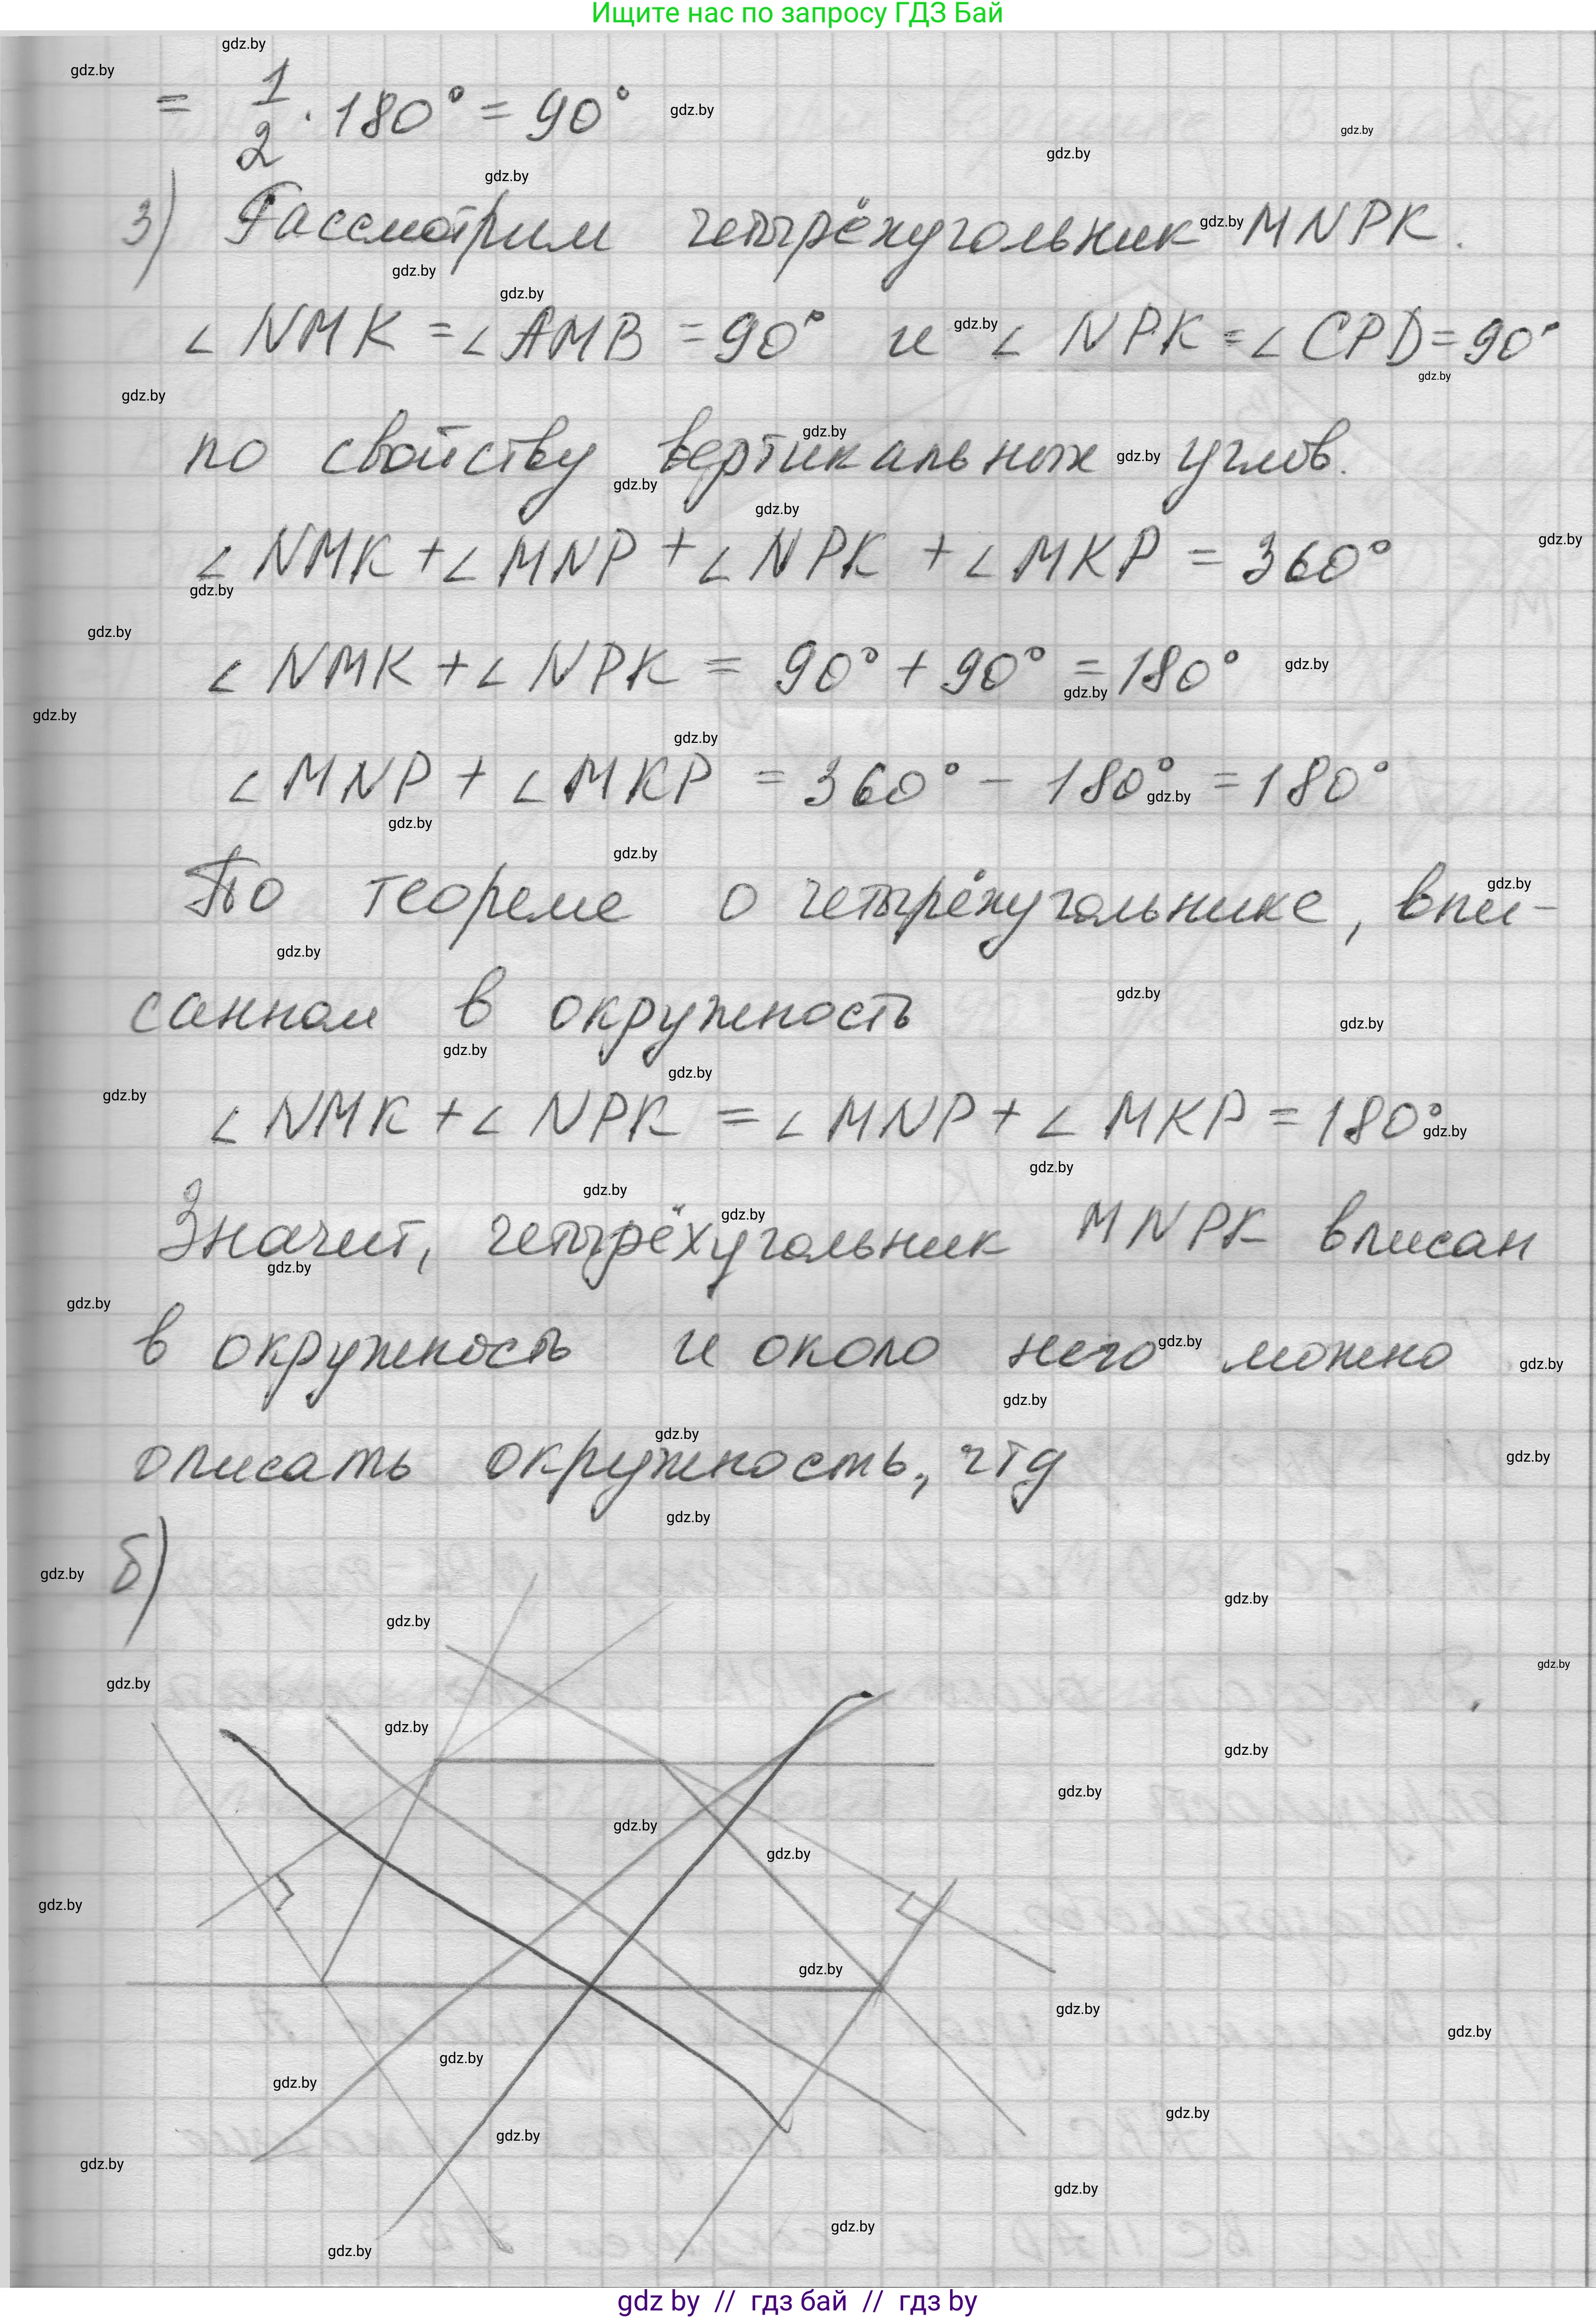 Ищите нас по запросу ГДЗ Бай
= 1/2 · 180° = 90°
3) Рассмотрим четырёхугольник MNPK.
∠ NMK = ∠ AMB = 90° и ∠ NPK = ∠ CPD = 90°
по свойству вертикальных углов.
∠ NMK + ∠ MNP + ∠ NPK + ∠ MKP = 360°
∠ NMK + ∠ NPK = 90° + 90° = 180°
∠ MNP + ∠ MKP = 360° − 180° = 180°
По теореме о четырёхугольнике, впи-
санном в окружность
∠ NMK + ∠ NPK = ∠ MNP + ∠ MKP = 180°
Значит, четырёхугольник MNPK вписан
в окружность и около него можно
описать окружность, чтд
б)
gdz by // гдз бай // гдз by